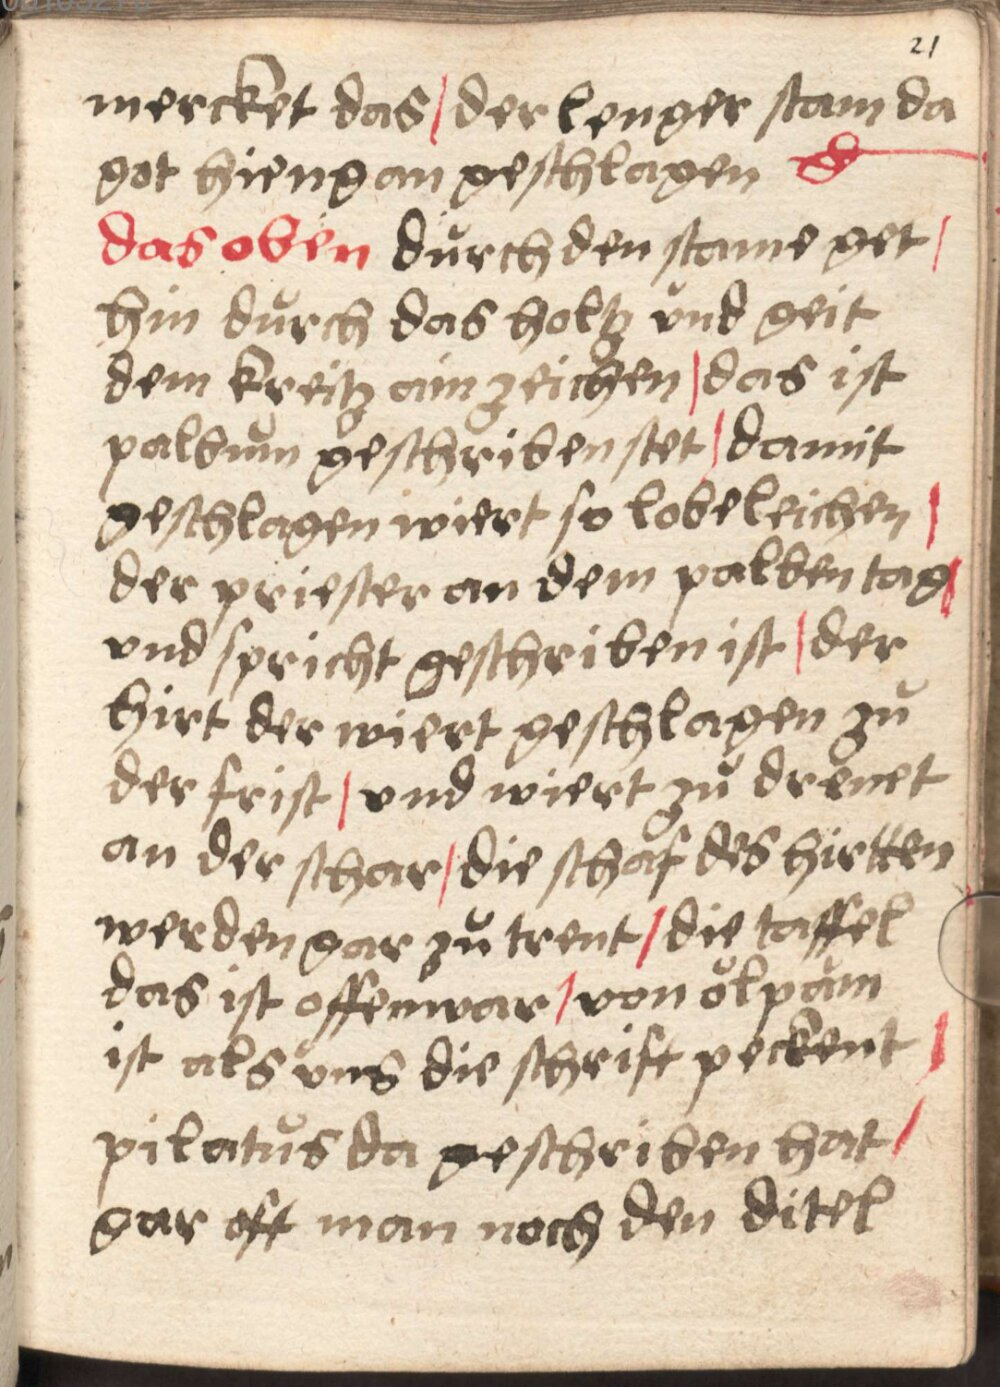 21
mercket das / der lenger stam da
got hieng an geschlagen
das oben durch den stame get /
hin durch das holtz vnd geit
dem kreitz ain zeichen / das ist
palbum geschriben stet / damit
geschlagen wiert so lobeleichen /
der priester an dem palben tag /
vnd spricht geschriben ist / der
hirt der wiert geschlagen zů
der frist / vnd wiert zů drenet
an der schar / die schaf des hirtten
werden gar zů trent / die taffel
das ist offenwar / von ölpäm
ist als vns die schrift peckent /
pilatus da geschriben hat /
gar oft man noch den ditel